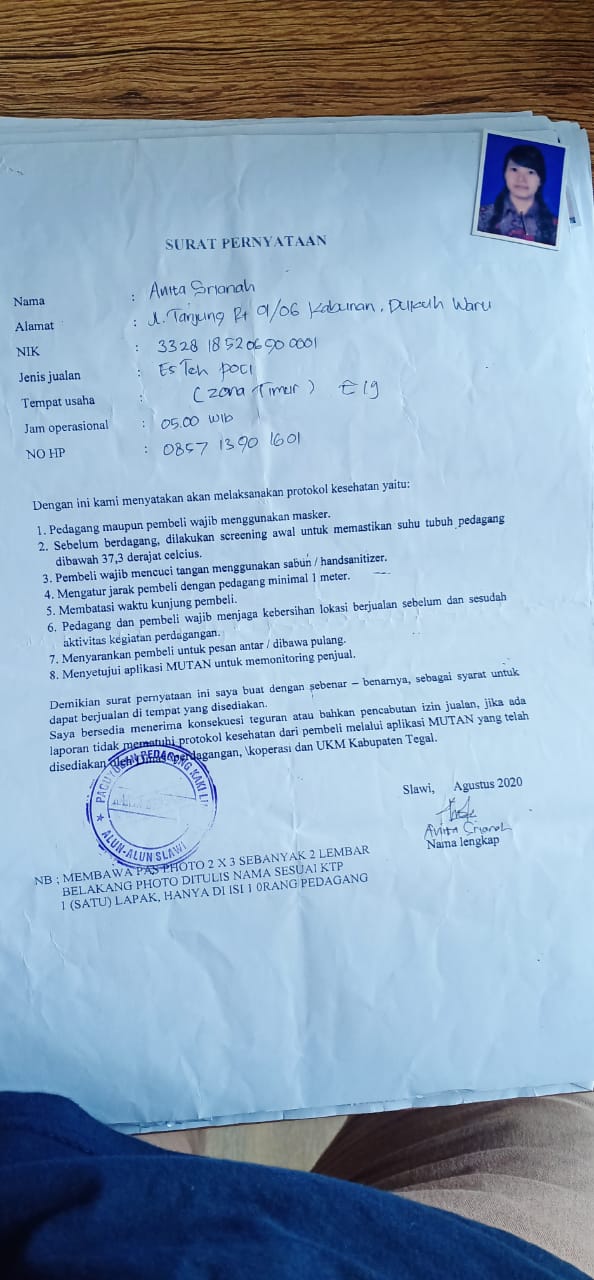 SURAT PERNYATAAN
Nama : Anita Srianah
Alamat : Jl. Tanjung Rt 01/06 Kabunan, Dukuh Waru
NIK : 3328 18 520690 0001
Jenis jualan : Es Teh poci
Tempat usaha : (Zona Timur) E19
Jam operasional : 05.00 wib
NO HP : 0857 1390 1601
Dengan ini kami menyatakan akan melaksanakan protokol kesehatan yaitu:
1. Pedagang maupun pembeli wajib menggunakan masker.
2. Sebelum berdagang, dilakukan screening awal untuk memastikan suhu tubuh pedagang
dibawah 37,3 derajat celcius.
3. Pembeli wajib mencuci tangan menggunakan sabun / handsanitizer.
4. Mengatur jarak pembeli dengan pedagang minimal 1 meter.
5. Membatasi waktu kunjung pembeli.
6. Pedagang dan pembeli wajib menjaga kebersihan lokasi berjualan sebelum dan sesudah
aktivitas kegiatan perdagangan.
7. Menyarankan pembeli untuk pesan antar / dibawa pulang.
8. Menyetujui aplikasi MUTAN untuk memonitoring penjual.
Demikian surat pernyataan ini saya buat dengan sebenar – benarnya, sebagai syarat untuk
dapat berjualan di tempat yang disediakan.
Saya bersedia menerima konsekuesi teguran atau bahkan pencabutan izin jualan, jika ada
laporan tidak mematuhi protokol kesehatan dari pembeli melalui aplikasi MUTAN yang telah
disediakan oleh Dinas perdagangan, \koperasi dan UKM Kabupaten Tegal.
PAGUYUBAN PEDAGANG KAKI
ALUN-ALUN SLAWI
Slawi, Agustus 2020
Anita Srianah
Nama lengkap
NB ; MEMBAWA PAS PHOTO 2 X 3 SEBANYAK 2 LEMBAR
BELAKANG PHOTO DITULIS NAMA SESUAI KTP
1 (SATU) LAPAK, HANYA DI ISI 1 0RANG PEDAGANG